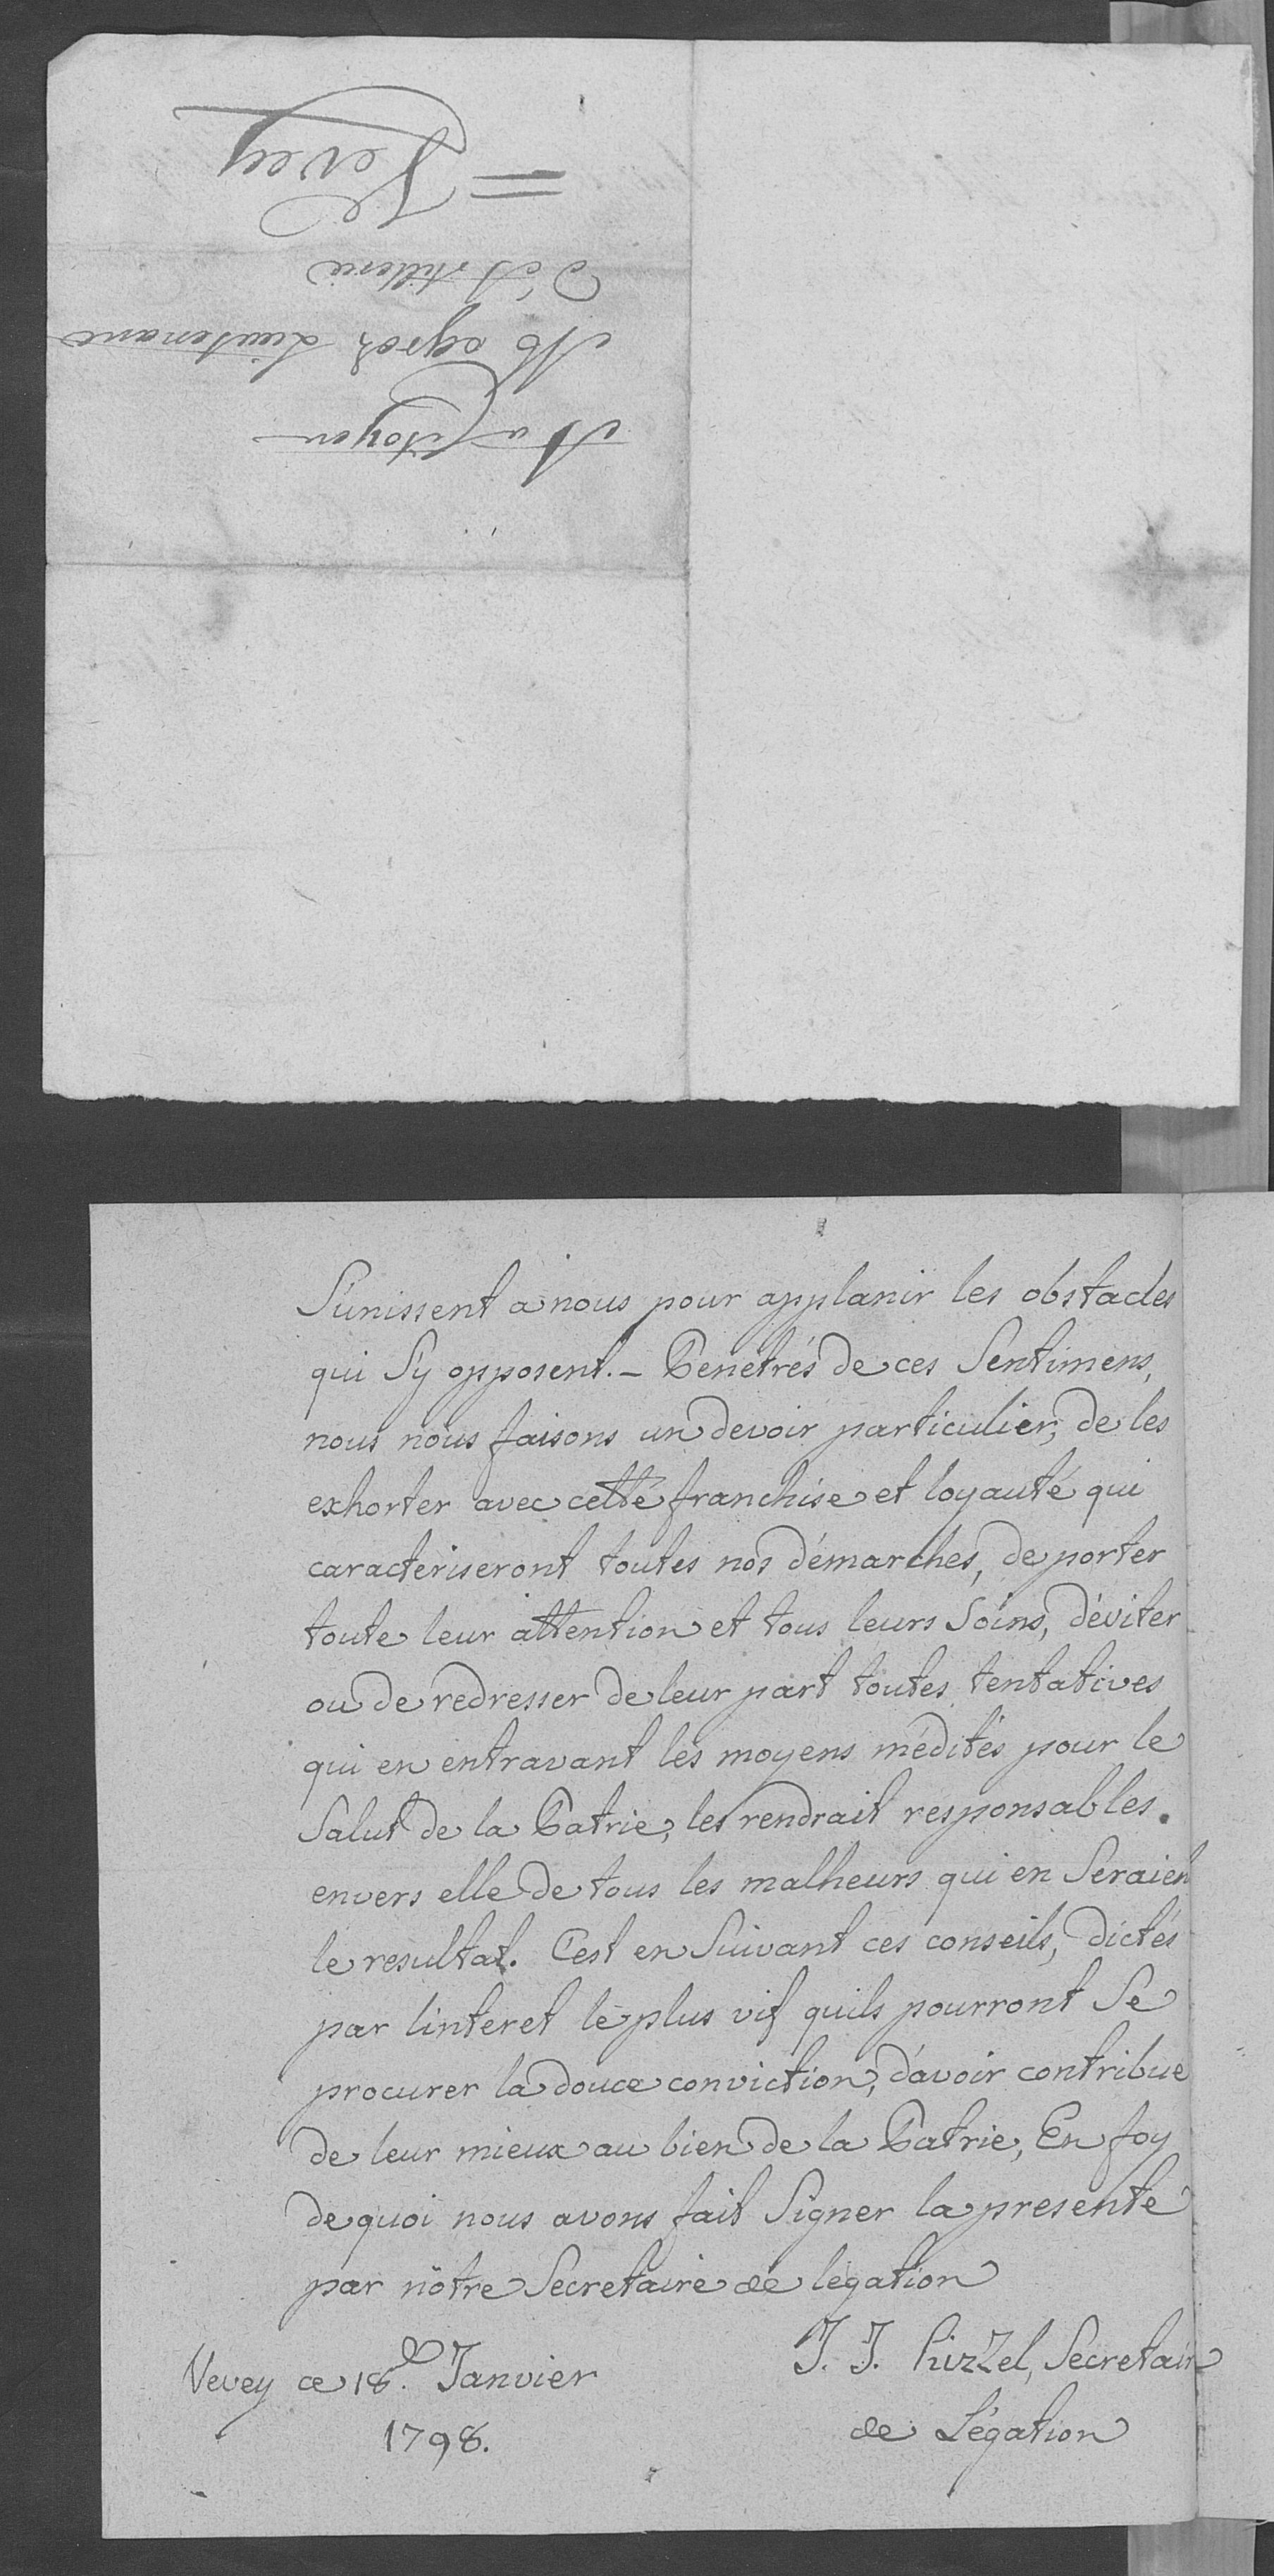 Au Citoyen
lieutenant
d'Artillerie
= Vevey
Sunissent a nous pour applanir les obstacles
qui Sy opposent. – Penetrés de ces Sentimens,
nous nous faisons un devoir particulier, de les
exhorter avec cette franchise et loyauté qui
caracteriseront toutes nos démarches, de porter
toute leur attention et tous leurs Soins, déviter
ou de redresser de leur part toutes tentatives
qui en entravant les moyens médités pour le
Salut de la Patrie, les rendrait responsables.
envers elle de tous les malheurs qui en Seraient
le resultat. Cest en Suivant ces conseils, dictés
par linteret le plus vif quils pourront Se
procurer la douce conviction, davoir contribue
de leur mieux au bien de la Patrie, En foy
de quoi nous avons fait Signer la presente
par nôtre Secretaire de legation
J. J. Secretaire
Vevey ce 18.e Janvier
de Légation
1798.